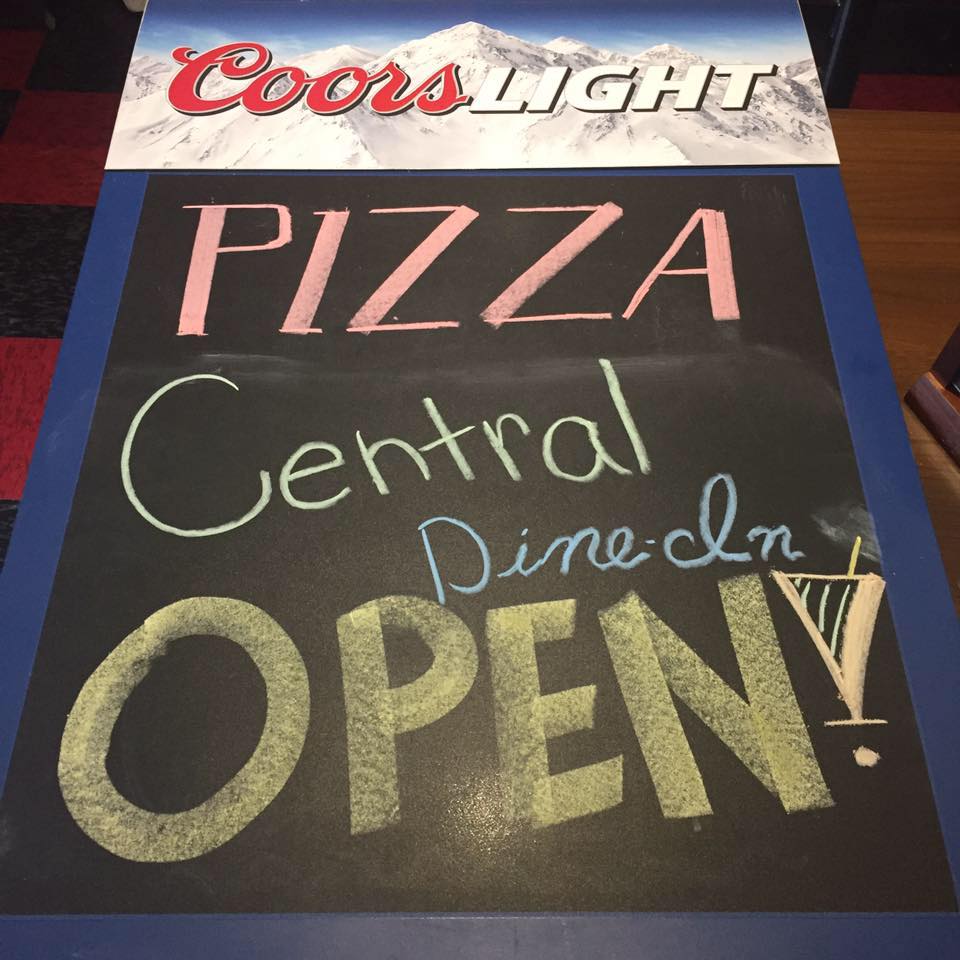 Coors LIGHT
PIZZA
Central
Dine-In
OPEN!